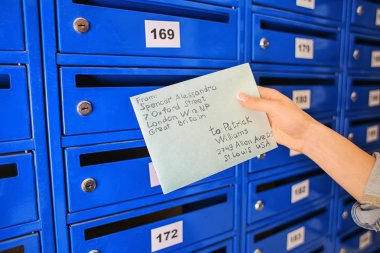 169
179
From:
Spencer Alessandro
7 Oxford Street
London W12 NP
Great Britain
to Patrick
Williams
Allen Ave
St Louis USA
172
182
183